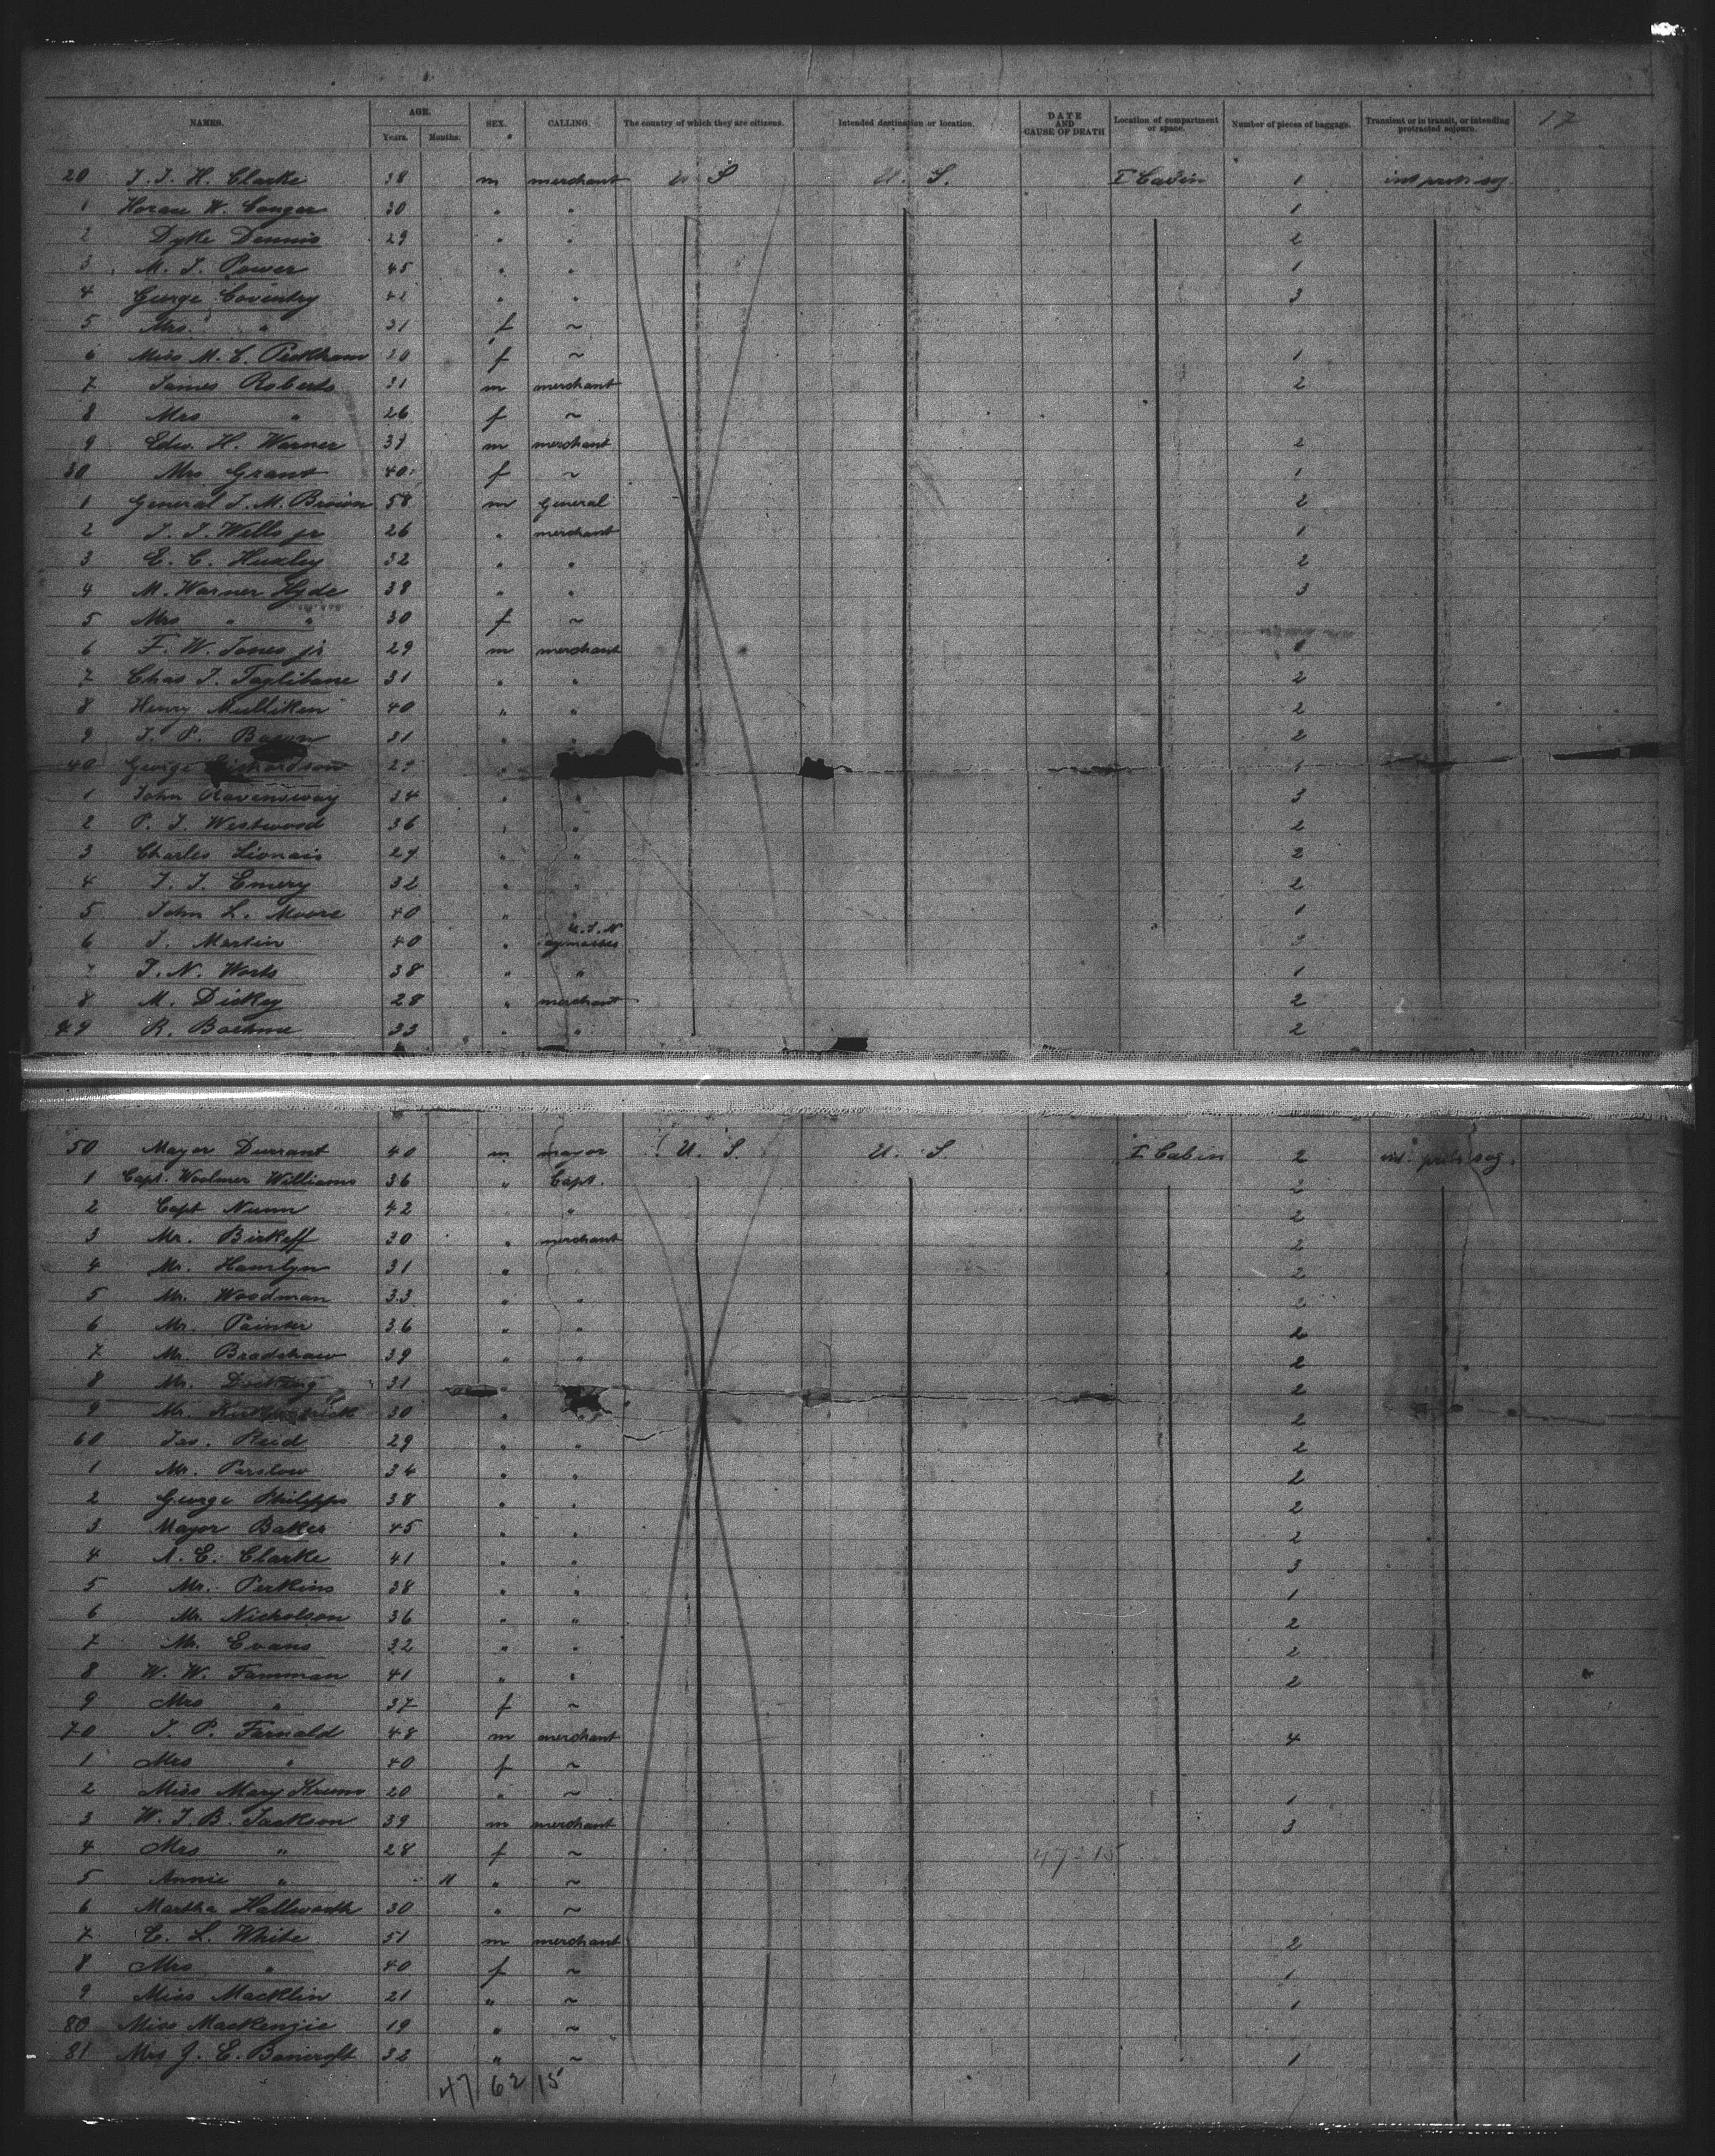 17
NAMES. AGE. SEX. CALLING. The country of which they are citizens. Intended destination or location. DATE AND CAUSE OF DEATH Location of compartment or space. Number of pieces of baggage. Transient or in transit, or intending protracted sojourn.
Years. Months.
20 J. J. H. Clarke 38 m merchant U S U. S. I Cabin 1 int protr soj.
1 Horace W. Conger 30 " " 1
2 Dyke Dennis 29 " " 2
3 M. J. Power 45 " " 1
4 George Coventry 42 " " 3
5 Mrs. " 31 f ~
6 Miss M. C. Peckham 20 f ~ 1
7 James Roberts 31 m merchant 2
8 Mrs " 26 f ~
9 Edw. H. Warner 37 m merchant 2
30 Mrs Grant 40 f ~ 1
1 General J. M. Brown 58 m General 2
2 J. J. Wells jr 26 " merchant 1
3 E. C. Huxley 32 " " 2
4 M. Warner Hyde 38 " " 3
5 Mrs " " 30 f ~
6 F. W. Jones jr 29 m merchant 1
7 Chas J. 31 " " 2
8 Henry Mulliken 40 " " 2
9 J. P. Bacon 31 " " 2
40 George Richardson 29 " 1
1 John Ravensway 34 " " 3
2 P. J. Westwood 36 " " 2
3 Charles Lionais 29 " " 2
4 J. J. Emery 32 " " 2
5 John L. Moore 40 " " 1
6 J. Martin 40 " U.S.N 3
7 J. N. Worts 38 " " 1
8 M. Dickey 28 " merchant 2
49 R. Boehme 33 " " 2
50 Mayor Durrant 40 m mayor U. S. U. S. I Cabin 2 int. protr soj.
1 Capt. Woolmer Williams 36 " Capt. 2
2 Capt Nunn 42 " " 2
3 Mr. Birkeff 30 " merchant 2
4 Mr. Hamlyn 31 " 2
5 Mr. Woodman 33 " " 2
6 Mr. Painter 36 " " 2
7 Mr. Bradshaw 39 " " 2
8 Mr. 31 " 2
9 Mr. Kirkpatrick 30 " 2
60 Jas. Reid 29 " " 2
1 Mr. Parslow 34 " " 2
2 George Philipps 38 " " 2
3 Mayor Baker 45 " " 2
4 A. C. Clarke 41 " " 3
5 Mr. Perkins 38 " " 1
6 Mr. Nicholson 36 " " 2
7 Mr. Evans 32 " " 2
8 W. W. Famman 41 " " 2
9 Mrs " 37 f ~
70 J. P. Farnald 48 m merchant 4
1 Mrs " 40 f ~
2 Miss Mary 20 " ~ 1
3 W. J. B. Jackson 39 m merchant 3
4 Mrs " 28 f ~ 47-15
5 Annie " 11 " ~
6 Martha Hallworth 30 " ~
7 C. L. White 51 m merchant 2
8 Mrs " 40 f ~ 1
9 Miss Macklin 21 " ~ 1
80 Miss Mackenzie 19 " ~
81 Mrs J. C. Bancroft 32 " ~ 1
47 62 15